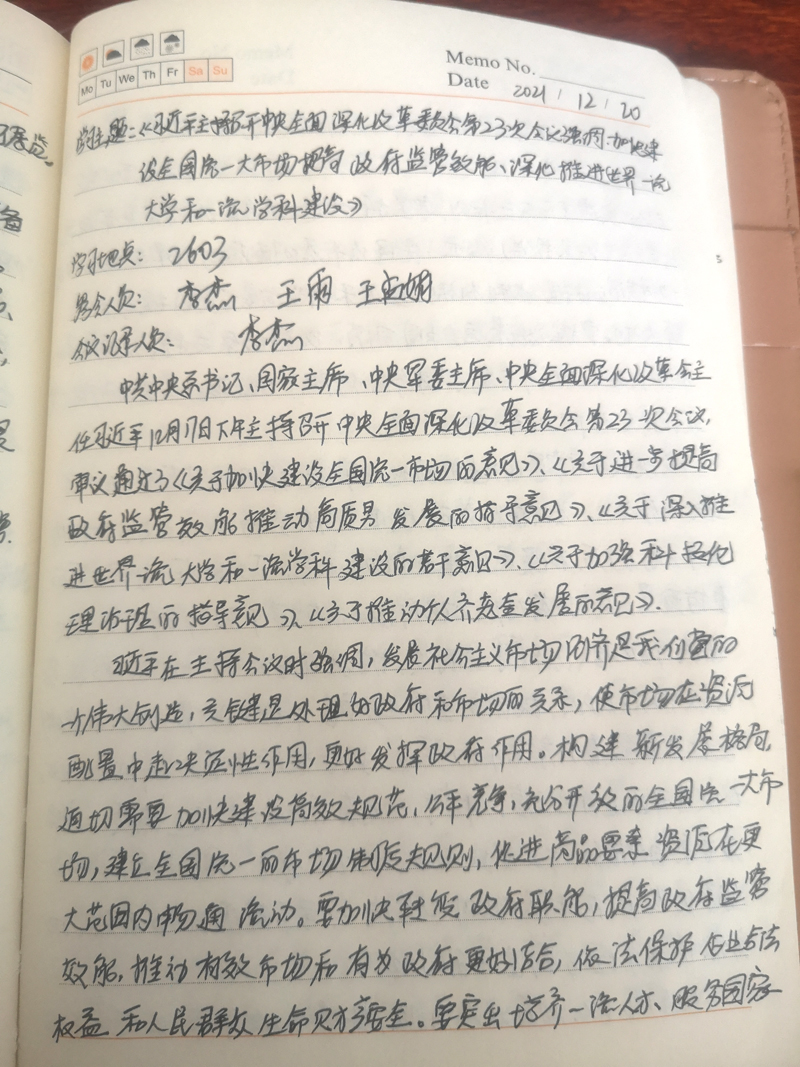 Memo No.
Mo Tu We Th Fr Sa Su
Date 2021 / 12 / 20
主题:《习近平主持召开中央全面深化改革委员会第23次会议强调 加快建
设全国统一大市场提高政府监管效能、深化推进世界一流
大学和一流学科建设》
学习地点: 2603
参会人员: 李杰 王雨 王
会议记录人员: 李杰
中共中央总书记、国家主席、中央军委主席、中央全面深化改革会主
任习近平12月17日下午主持召开中央全面深化改革委员会第23次会议,
审议通过了《关于加快建设全国统一市场的意见》、《关于进一步提高
政府监管效能推动高质量发展的指导意见》、《关于深入推
进世界一流大学和一流学科建设的若干意见》、《关于加强科技伦
理治理的指导意见》、《关于推动个人养老金发展的意见》.
习近平在主持会议时强调,发展社会主义市场经济是我们党的
一个伟大创造,关键是处理好政府和市场的关系,使市场在资源
配置中起决定性作用,更好发挥政府作用。构建新发展格局,
迫切需要加快建设高效规范,公平竞争,充分开放的全国统一大市
场,建立全国统一的市场制度规则,促进商品要素资源在更
大范围内畅通流动。要加快转变政府职能,提高政府监管
效能,推动有效市场和有为政府更好结合,依法保护企业合法
权益和人民群众生命财产安全。要突出培养一流人才、服务国家